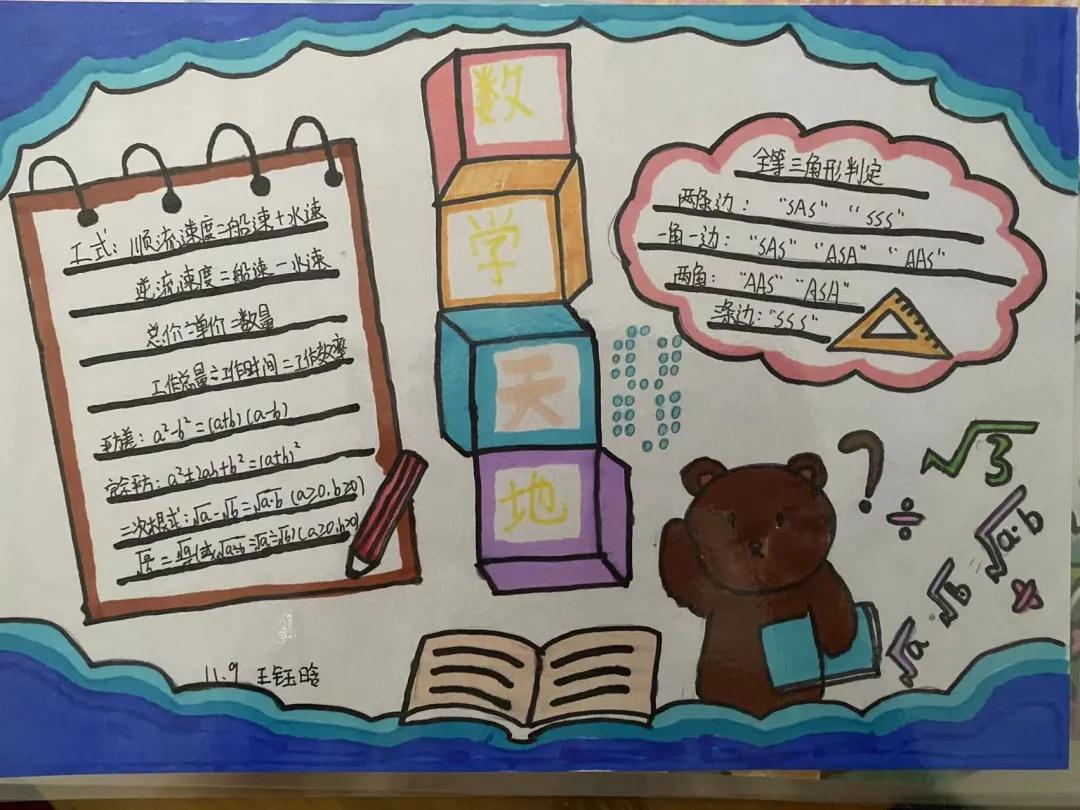 数
学
天
地
工式：顺流速度=船速+水速
逆流速度=船速-水速
总价=单价=数量
工作总量=工作时间=工作效率
平方差：a²-b²=(a+b)(a-b)
完全平方：a²±2ab+b²=(a±b)²
二次根式：√a-√b=√a·b (a≥0,b≥0)
全等三角形判定
两条边："SAS" "SSS"
一角一边："SAS" "ASA" "AAS"
两角："AAS" "ASA"
条边："SSS"
?
÷
√3
√a·b
×
√a·√b
11.9 王钰晗